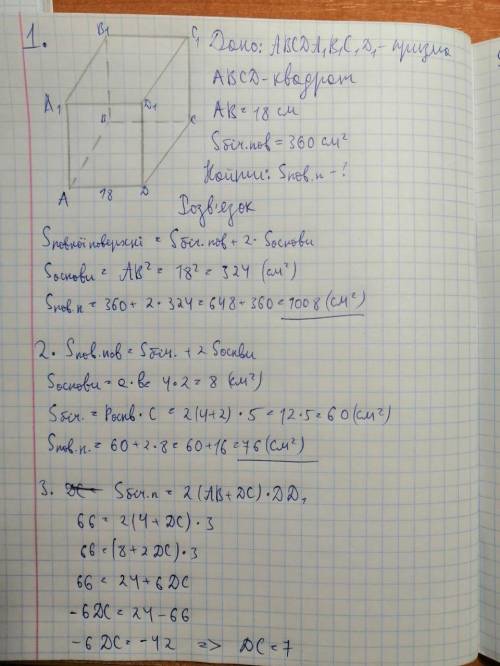 1.
B₁ C₁
A₁ D₁
B C
A 18 D
Дано: ABCDA₁B₁C₁D₁ - призма
ABCD - квадрат
AB = 18 см
Sбіч.пов = 360 см²
Найти: Sпов.п - ?
Розв'язок
Sповної поверхні = Sбіч.пов + 2 · Sоснови
Sоснови = AB² = 18² = 324 (см²)
Sпов.п = 360 + 2 · 324 = 648 + 360 = 1008 (см²)
2. Sпов.пов = Sбіч. + 2 Sоснви
Sоснови = a · b = 4 · 2 = 8 (см²)
Sбіч. = Pоснв · C = 2(4+2) · 5 = 12 · 5 = 60 (см²)
Sпов.п. = 60 + 2 · 8 = 60 + 16 = 76 (см²)
3. Sбіч.п = 2(AB + DC) · DD₁
66 = 2(4 + DC) · 3
66 = (8 + 2DC) · 3
66 = 24 + 6DC
-6DC = 24 - 66
-6DC = -42 => DC = 7